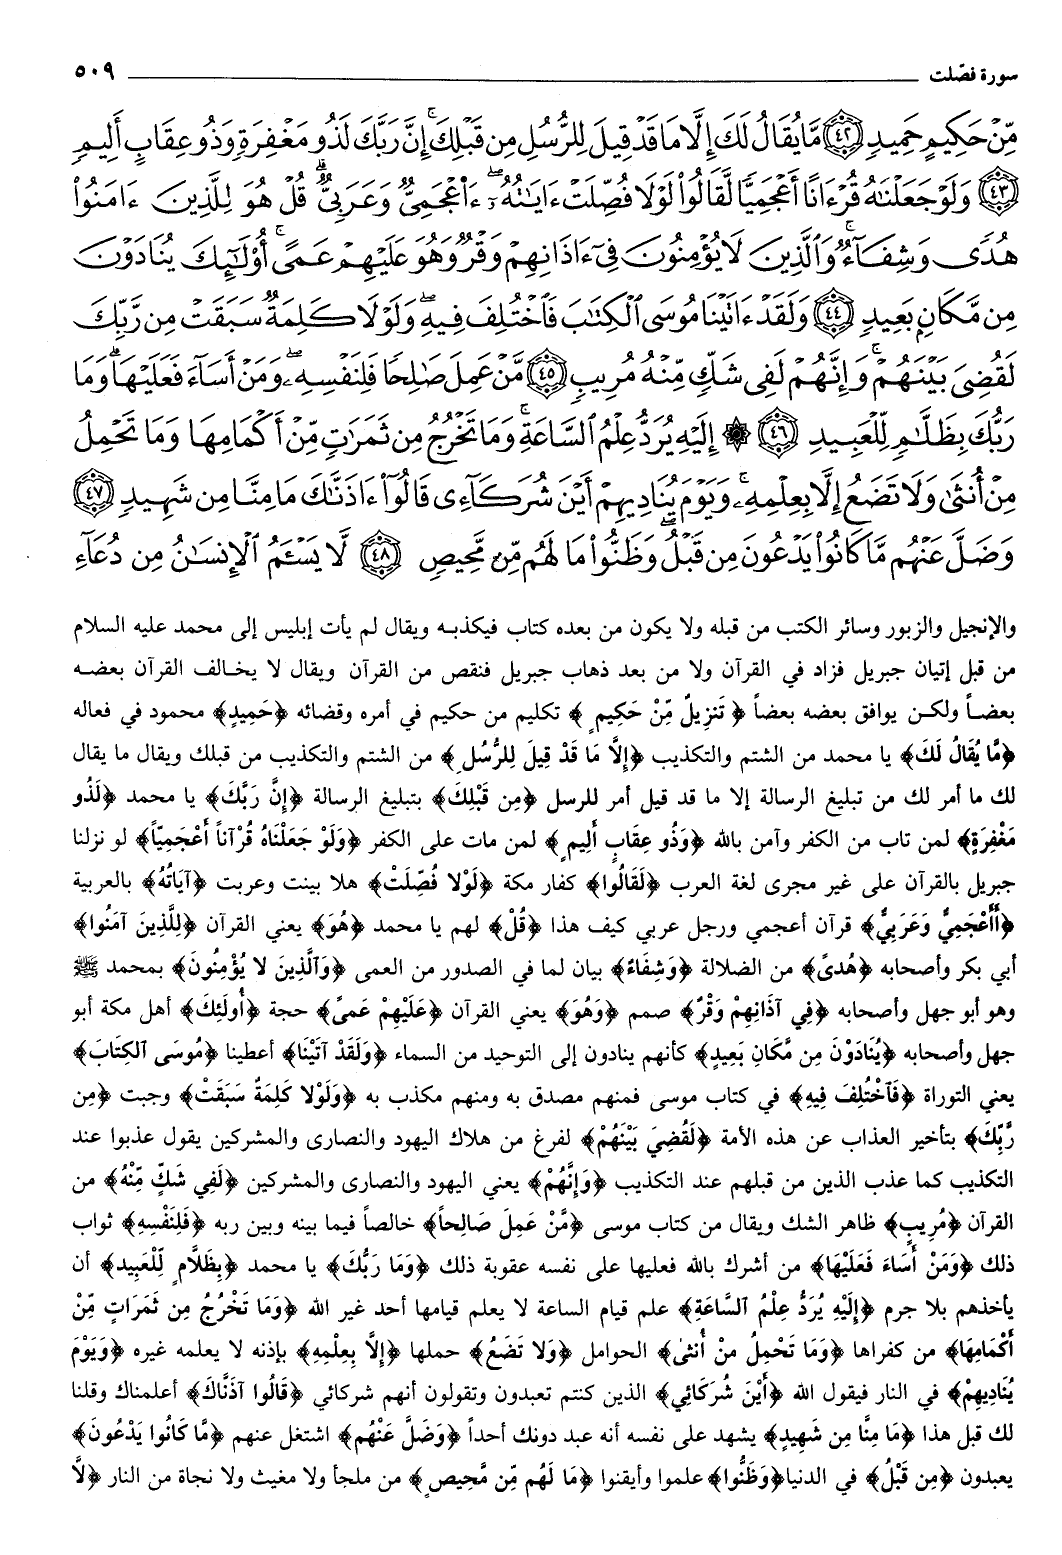 سورة فصّلت ٥٠٩
مِّنْ حَكِيمٍ حَمِيدٍ ﴿٤٢﴾ مَّا يُقَالُ لَكَ إِلَّا مَا قَدْ قِيلَ لِلرُّسُلِ مِن قَبْلِكَ ۚ إِنَّ رَبَّكَ لَذُو مَغْفِرَةٍ وَذُو عِقَابٍ أَلِيمٍ
﴿٤٣﴾ وَلَوْ جَعَلْنَٰهُ قُرْءَانًا أَعْجَمِيًّا لَّقَالُوا۟ لَوْلَا فُصِّلَتْ ءَايَٰتُهُۥٓ ۖ ءَا۬عْجَمِىٌّ وَعَرَبِىٌّ ۗ قُلْ هُوَ لِلَّذِينَ ءَامَنُوا۟
هُدًى وَشِفَآءٌ ۚ وَٱلَّذِينَ لَا يُؤْمِنُونَ فِىٓ ءَاذَانِهِمْ وَقْرٌ وَهُوَ عَلَيْهِمْ عَمًى ۚ أُو۟لَٰٓئِكَ يُنَادَوْنَ
مِن مَّكَانٍۭ بَعِيدٍ ﴿٤٤﴾ وَلَقَدْ ءَاتَيْنَا مُوسَى ٱلْكِتَٰبَ فَٱخْتُلِفَ فِيهِ ۗ وَلَوْلَا كَلِمَةٌ سَبَقَتْ مِن رَّبِّكَ
لَقُضِىَ بَيْنَهُمْ ۚ وَإِنَّهُمْ لَفِى شَكٍّ مِّنْهُ مُرِيبٍ ﴿٤٥﴾ مَّنْ عَمِلَ صَٰلِحًا فَلِنَفْسِهِۦ ۖ وَمَنْ أَسَآءَ فَعَلَيْهَا ۗ وَمَا
رَبُّكَ بِظَلَّٰمٍ لِّلْعَبِيدِ ﴿٤٦﴾ ۞ إِلَيْهِ يُرَدُّ عِلْمُ ٱلسَّاعَةِ ۚ وَمَا تَخْرُجُ مِن ثَمَرَٰتٍ مِّنْ أَكْمَامِهَا وَمَا تَحْمِلُ
مِنْ أُنثَىٰ وَلَا تَضَعُ إِلَّا بِعِلْمِهِۦ ۚ وَيَوْمَ يُنَادِيهِمْ أَيْنَ شُرَكَآءِى قَالُوٓا۟ ءَاذَنَّٰكَ مَا مِنَّا مِن شَهِيدٍ ﴿٤٧﴾
وَضَلَّ عَنْهُم مَّا كَانُوا۟ يَدْعُونَ مِن قَبْلُ ۖ وَظَنُّوا۟ مَا لَهُم مِّن مَّحِيصٍ ﴿٤٨﴾ لَّا يَسْـَٔمُ ٱلْإِنسَٰنُ مِن دُعَآءِ
والإنجيل والزبور وسائر الكتب من قبله ولا يكون من بعده كتاب فيكذبه ويقال لم يأت إبليس إلى محمد عليه السلام
من قبل إتيان جبريل فزاد في القرآن ولا من بعد ذهاب جبريل فنقص من القرآن ويقال لا يخالف القرآن بعضه
بعضاً ولكن يوافق بعضه بعضاً ﴿تَنزِيلٌ مِّنْ حَكِيمٍ﴾ تكليم من حكيم في أمره وقضائه ﴿حَمِيدٍ﴾ محمود في فعاله
﴿مَّا يُقَالُ لَكَ﴾ يا محمد من الشتم والتكذيب ﴿إِلَّا مَا قَدْ قِيلَ لِلرُّسُلِ﴾ من الشتم والتكذيب من قبلك ويقال ما يقال
لك ما أمر لك من تبليغ الرسالة إلا ما قد قيل أمر للرسل ﴿مِن قَبْلِكَ﴾ بتبليغ الرسالة ﴿إِنَّ رَبَّكَ﴾ يا محمد ﴿لَذُو
مَغْفِرَةٍ﴾ لمن تاب من الكفر وآمن بالله ﴿وَذُو عِقَابٍ أَلِيمٍ﴾ لمن مات على الكفر ﴿وَلَوْ جَعَلْنَاهُ قُرْآناً أَعْجَمِيّاً﴾ لو نزلنا
جبريل بالقرآن على غير مجرى لغة العرب ﴿لَقَالُوا﴾ كفار مكة ﴿لَوْلا فُصِّلَتْ﴾ هلا بينت وعربت ﴿آيَاتُهُ﴾ بالعربية
﴿أَأَعْجَمِيٌّ وَعَرَبِيٌّ﴾ قرآن أعجمي ورجل عربي كيف هذا ﴿قُلْ﴾ لهم يا محمد ﴿هُوَ﴾ يعني القرآن ﴿لِلَّذِينَ آمَنُوا﴾
أبي بكر وأصحابه ﴿هُدىً﴾ من الضلالة ﴿وَشِفَاءٌ﴾ بيان لما في الصدور من العمى ﴿وَٱلَّذِينَ لا يُؤْمِنُونَ﴾ بمحمد ﷺ
وهو أبو جهل وأصحابه ﴿فِي آذَانِهِمْ وَقْرٌ﴾ صمم ﴿وَهُوَ﴾ يعني القرآن ﴿عَلَيْهِمْ عَمىً﴾ حجة ﴿أُولَئِكَ﴾ أهل مكة أبو
جهل وأصحابه ﴿يُنَادَوْنَ مِن مَّكَانٍ بَعِيدٍ﴾ كأنهم ينادون إلى التوحيد من السماء ﴿وَلَقَدْ آتَيْنَا﴾ أعطينا ﴿مُوسَى ٱلْكِتَابَ﴾
يعني التوراة ﴿فَٱخْتُلِفَ فِيهِ﴾ في كتاب موسى فمنهم مصدق به ومنهم مكذب به ﴿وَلَوْلا كَلِمَةٌ سَبَقَتْ﴾ وجبت ﴿مِن
رَّبِّكَ﴾ بتأخير العذاب عن هذه الأمة ﴿لَقُضِيَ بَيْنَهُمْ﴾ لفرغ من هلاك اليهود والنصارى والمشركين يقول عذبوا عند
التكذيب كما عذب الذين من قبلهم عند التكذيب ﴿وَإِنَّهُمْ﴾ يعني اليهود والنصارى والمشركين ﴿لَفِي شَكٍّ مِّنْهُ﴾ من
القرآن ﴿مُرِيبٍ﴾ ظاهر الشك ويقال من كتاب موسى ﴿مَّنْ عَمِلَ صَالِحاً﴾ خالصاً فيما بينه وبين ربه ﴿فَلِنَفْسِهِ﴾ ثواب
ذلك ﴿وَمَنْ أَسَاءَ فَعَلَيْهَا﴾ من أشرك بالله فعليها على نفسه عقوبة ذلك ﴿وَمَا رَبُّكَ﴾ يا محمد ﴿بِظَلَّامٍ لِّلْعَبِيدِ﴾ أن
يأخذهم بلا جرم ﴿إِلَيْهِ يُرَدُّ عِلْمُ ٱلسَّاعَةِ﴾ علم قيام الساعة لا يعلم قيامها أحد غير الله ﴿وَمَا تَخْرُجُ مِن ثَمَرَاتٍ مِّنْ
أَكْمَامِهَا﴾ من كفراها ﴿وَمَا تَحْمِلُ مِنْ أُنثىٰ﴾ الحوامل ﴿وَلا تَضَعُ﴾ حملها ﴿إِلَّا بِعِلْمِهِ﴾ بإذنه لا يعلمه غيره ﴿وَيَوْمَ
يُنَادِيهِمْ﴾ في النار فيقول الله ﴿أَيْنَ شُرَكَائِي﴾ الذين كنتم تعبدون وتقولون أنهم شركائي ﴿قَالُوا آذَنَّاكَ﴾ أعلمناك وقلنا
لك قبل هذا ﴿مَا مِنَّا مِن شَهِيدٍ﴾ يشهد على نفسه أنه عبد دونك أحداً ﴿وَضَلَّ عَنْهُم﴾ اشتغل عنهم ﴿مَّا كَانُوا يَدْعُونَ﴾
يعبدون ﴿مِن قَبْلُ﴾ في الدنيا ﴿وَظَنُّوا﴾ علموا وأيقنوا ﴿مَا لَهُم مِّن مَّحِيصٍ﴾ من ملجأ ولا مغيث ولا نجاة من النار ﴿لَّا